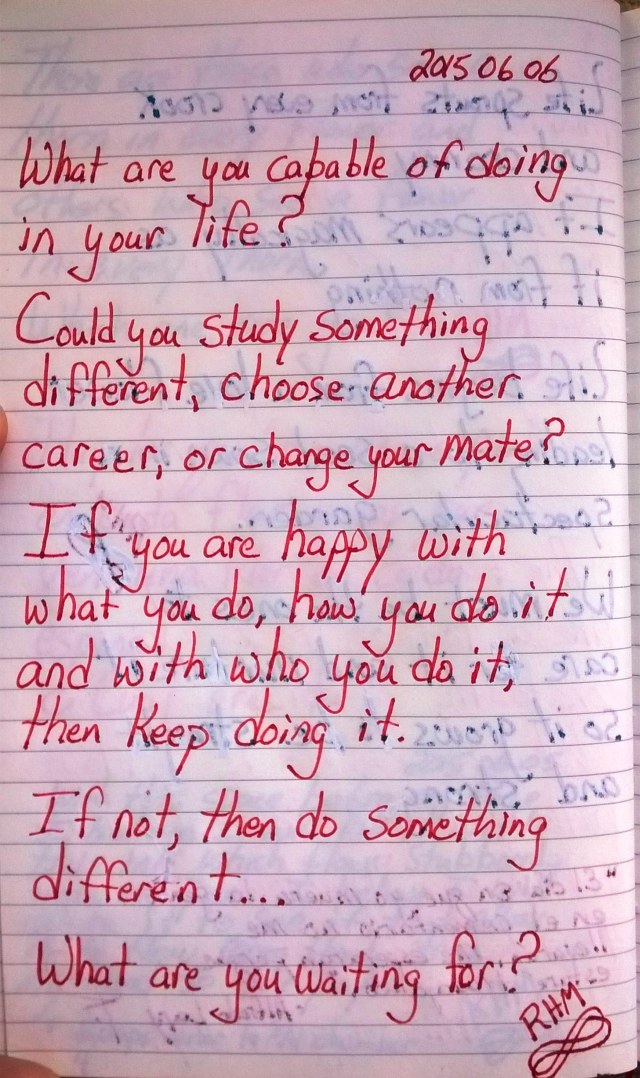 2015 06 06
What are you capable of doing
in your life?
Could you study something
different, choose another
career, or change your mate?
If you are happy with
what you do, how you do it
and with who you do it,
then keep doing it.
If not, then do something
different....
What are you waiting for?
RHM